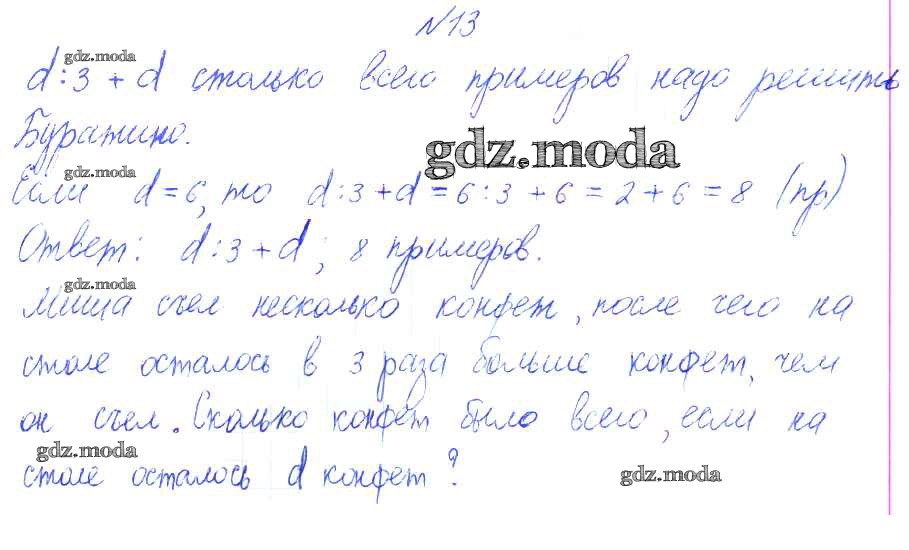 №13
gdz.moda
d:3 + d столько всего примеров надо решить
Буратино.
gdz.moda
gdz.moda
Если d=6, то d:3+d=6:3+6=2+6=8 (пр)
Ответ: d:3+d; 8 примеров.
gdz.moda
Миша съел несколько конфет, после чего на
столе осталось в 3 раза больше конфет, чем
он съел. Сколько конфет было всего, если на
gdz.moda
столе осталось d конфет?
gdz.moda